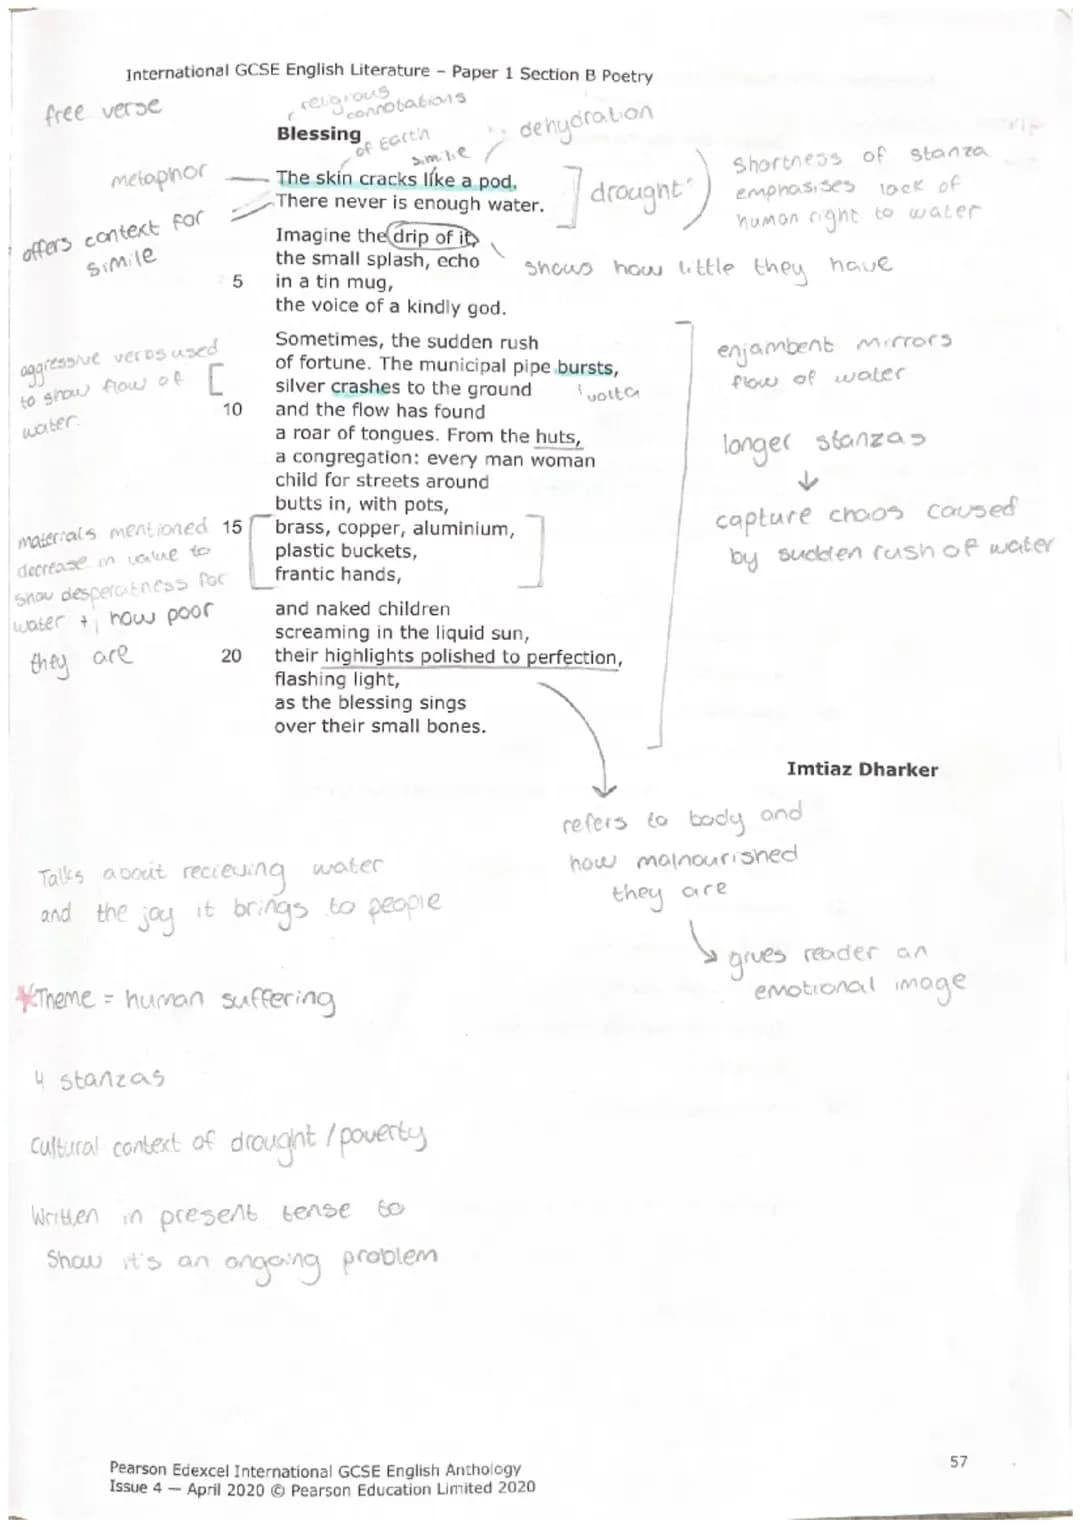 International GCSE English Literature – Paper 1 Section B Poetry
free verse
religious
connotations
Blessing
of Earth
simile
dehydration
metaphor
The skin cracks like a pod.
There never is enough water.
drought
Shortness of stanza
emphasises lack of
human right to water
offers context for
simile
Imagine the drip of it,
the small splash, echo
5 in a tin mug,
the voice of a kindly god.
shows how little they have
Sometimes, the sudden rush
of fortune. The municipal pipe bursts,
silver crashes to the ground
10 and the flow has found
a roar of tongues. From the huts,
a congregation: every man woman
child for streets around
butts in, with pots,
15 brass, copper, aluminium,
plastic buckets,
frantic hands,
volta
aggressive verbs used
to show flow of
water.
enjambent mirrors
flow of water
longer stanzas
↓
capture chaos caused
by sudden rush of water
materials mentioned
decrease in value to
show desperatness for
water + how poor
they are
and naked children
screaming in the liquid sun,
20 their highlights polished to perfection,
flashing light,
as the blessing sings
over their small bones.
Imtiaz Dharker
refers to body and
how malnourished
they are
gives reader an
emotional image
Talks about recieving water
and the joy it brings to people
*Theme = human suffering
4 stanzas
Cultural context of drought / poverty
Written in present tense to
Show it's an ongoing problem
Pearson Edexcel International GCSE English Anthology
Issue 4 — April 2020 © Pearson Education Limited 2020
57